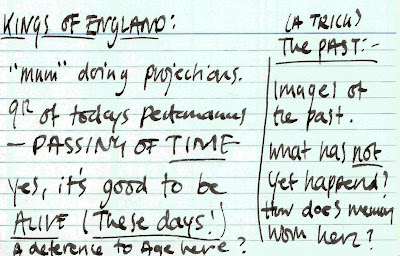 KINGS OF ENGLAND:
"mum" doing projections.
of todays
— PASSING OF TIME
Yes, it's good to be
ALIVE (These days!)
A deference to Age here?
(A TRICK)
The PAST:-
Images of
the past.
What has not
yet happend?
How does memory
work here?